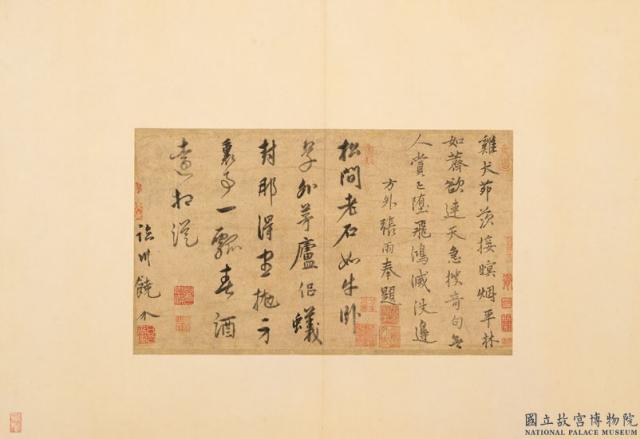 雞犬茆茨接暝烟平林
如薺欲連天急搜奇句無
人賞已墮飛鴻滅沒邊
方外張雨奉題
松間老石如牛臥
草外茅廬侣蟻
封那得君拋方
事一瓢春酒
遠相從
臨川饒介
國立故宮博物院
NATIONAL PALACE MUSEUM